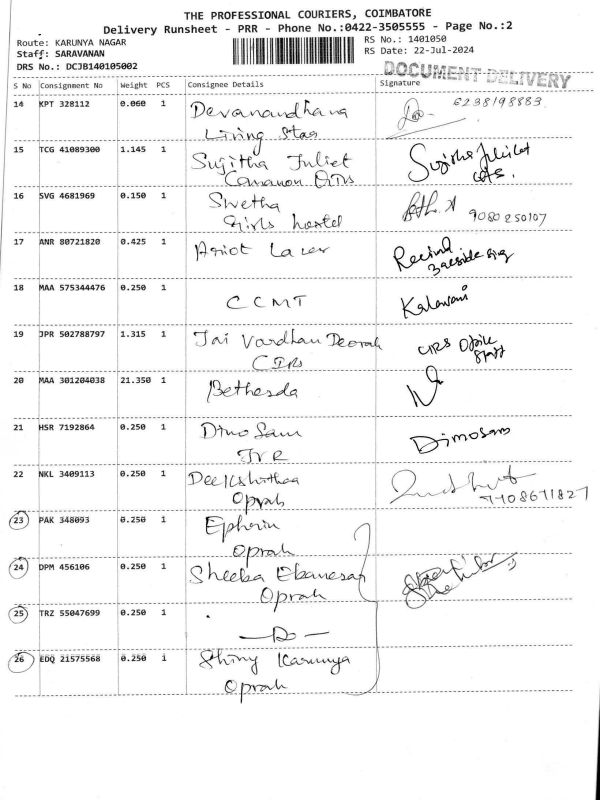 THE PROFESSIONAL COURIERS, COIMBATORE
Delivery Runsheet - PRR - Phone No.:0422-3505555 - Page No.:2
Route: KARUNYA NAGAR
RS No.: 1401050
Staff: SARAVANAN
RS Date: 22-Jul-2024
DRS No.: DCJB140105002
DOCUMENT DELIVERY
S No Consignment No Weight PCS Consignee Details Signature
14 KPT 328112 0.060 1 Devanandhana 6238198883
Living Star
15 TCG 41089300 1.145 1 Sujitha Juliet Sujitha Juliet
16 SVG 4681969 0.150 1 Swetha
Girls hostel 9080250107
17 ANR 80721820 0.425 1
18 MAA 575344476 0.250 1 CCMT Kalavani
19 JPR 502788797 1.315 1 Jai Vardhan Deorah CIRS Office
CIRS Staff
20 MAA 301204038 21.350 1 Bethesda
21 HSR 7192864 0.250 1 Dino Sam Dinosam
JVR
22 NKL 3409113 0.250 1 Deekshithaa
Oprah 7708671827
23 PAK 348093 0.250 1 Ephrin
Oprah
24 DPM 456106 0.250 1 Sheeba Ebanesar
Oprah
25 TRZ 55047699 0.250 1 -Do-
26 EDQ 21575568 0.250 1 Shiny Karunya
Oprah